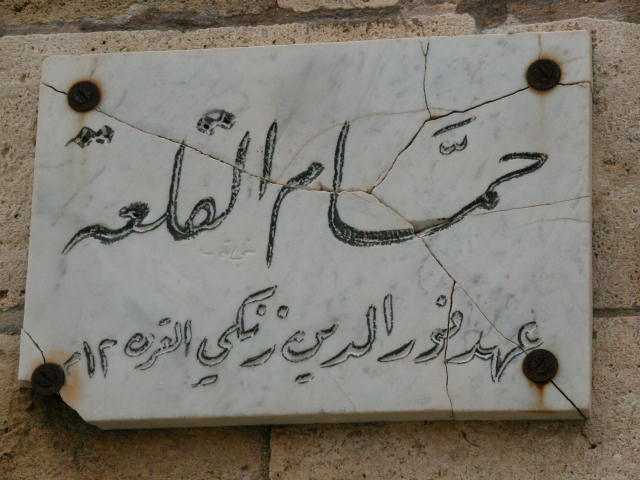 حمَّام القلعة
عهد نور الدين زنكي القرن ١٢م